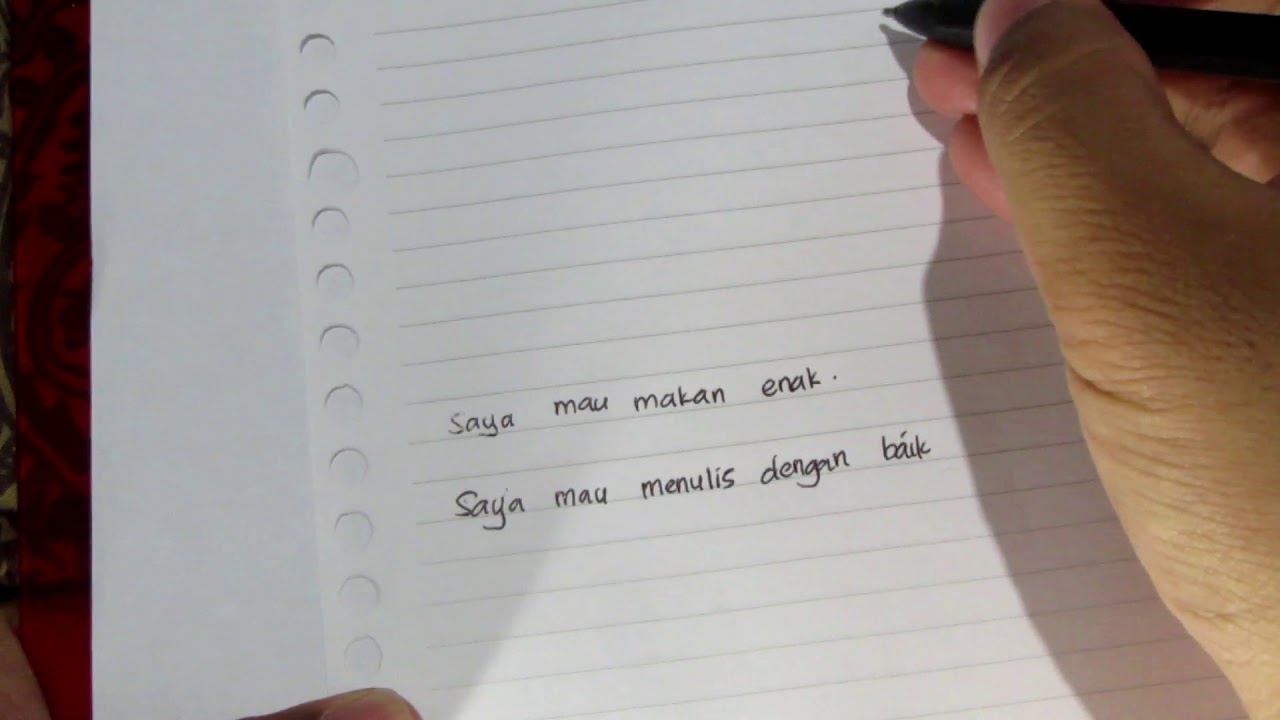 Saya mau makan enak.
Saya mau menulis dengan baik